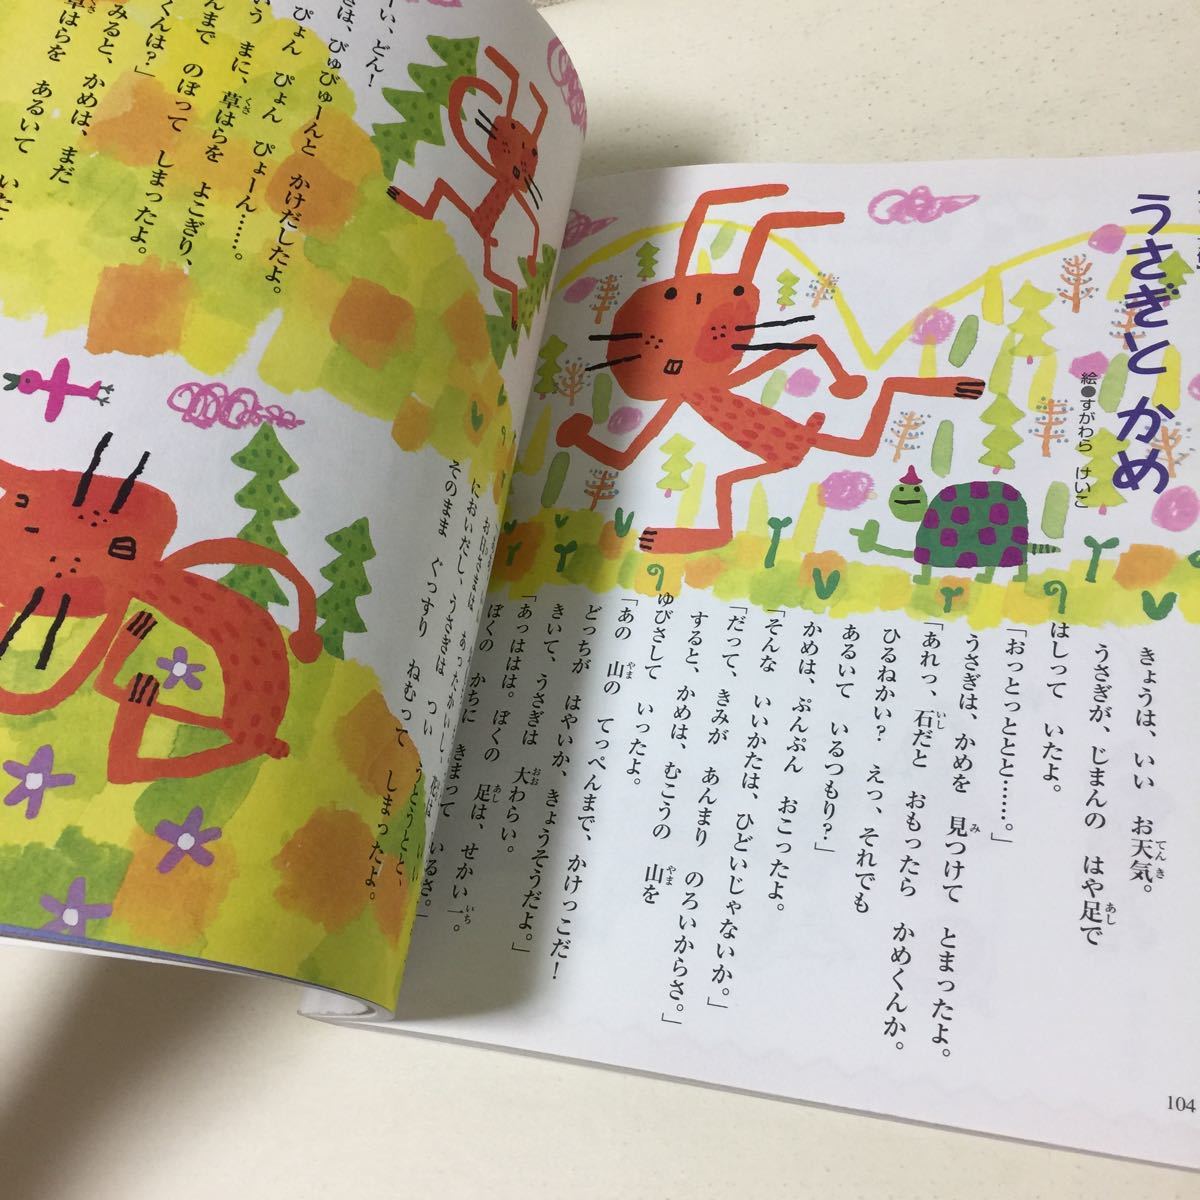 うさぎと かめ
絵●すがわら けいこ
きょうは、いい お天気。
うさぎが、じまんの はや足で
はしって いたよ。
「おっとっととと……。」
うさぎは、かめを 見つけて とまったよ。
「あれっ、石だと おもったら かめくんか。
ひるねかい? えっ、それでも
あるいて いるつもり?」
かめは、ぷんぷん おこったよ。
「そんな いいかたは、ひどいじゃないか。」
「だって、きみが あんまり のろいからさ。」
すると、かめは、むこうの 山を
ゆびさして いったよ。
「あの 山の てっぺんまで、かけっこだ!
どっちが はやいか、きょうそうだよ。」
きいて、うさぎは 大わらい。
「あっははは。ぼくの 足は、せかい一。
ぼくの かちに きまって いるさ。」
104
ーい、どん!
ぎは、びゅびゅーんと かけだしたよ。
ぴょん ぴょん ぴょーん……。
いう まに、草はらを よこぎり、
んまで のぼって しまったよ。
くんは?」
みると、かめは、まだ
草はらを あるいて いた
においだし、うさぎは つい
そのまま ぐっすり ねむって しまったよ。